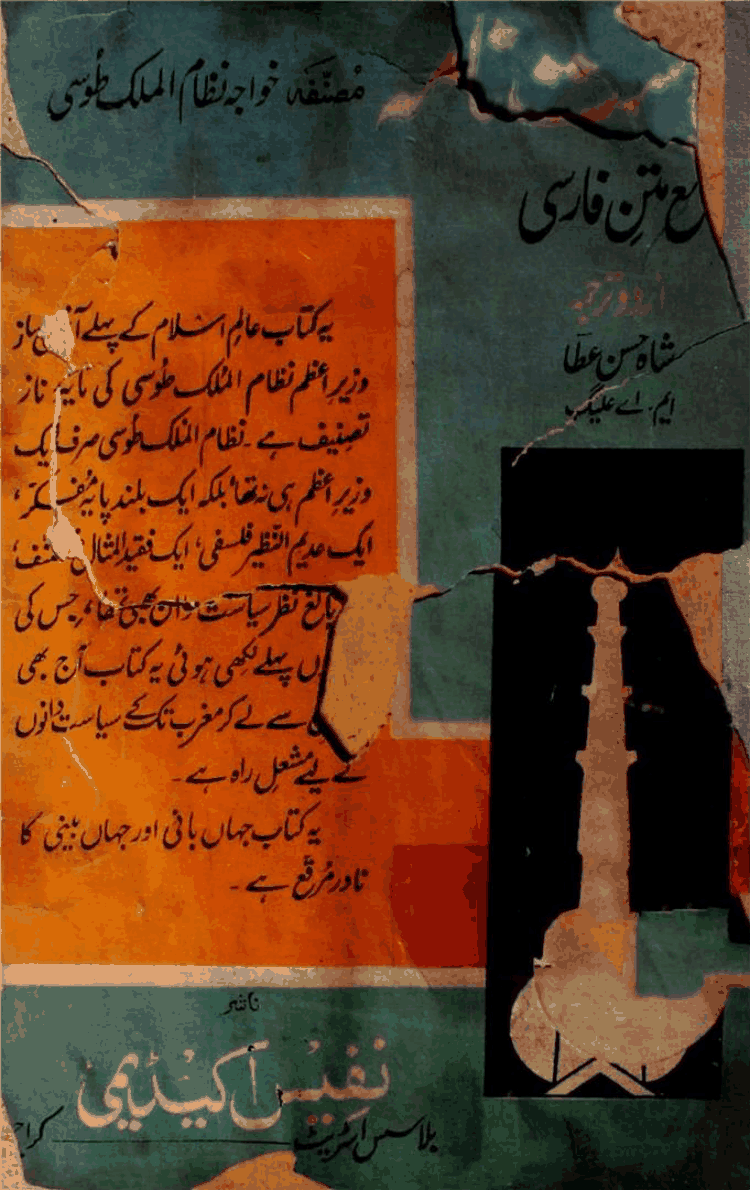 مُصنّفہ خواجہ نظام الملک طوسی
مع متنِ فارسی
اردو ترجمہ
شاہ حسن عطا
ایم۔ اے علیگ
یہ کتاب عالمِ اسلام کے پہلے
وزیرِ اعظم نظام المُلک طُوسی کی مایہ ناز
تصنیف ہے۔ نظام المُلک طُوسی صرف ایک
وزیرِ اعظم ہی نہ تھا، بلکہ ایک بلند پایہ مُفکّر،
ایک عدیم النّظیر فلسفی، ایک فقید المثال مصنف،
بالغ نظر سیاست دان بھی تھا، جس کی
پہلے لکھی ہوئی یہ کتاب آج بھی
سے لے کر مغرب تک کے سیاست دانوں
کے لیے مشعلِ راہ ہے۔
یہ کتاب جہاں بانی اور جہاں بینی کا
نادر مُرقّع ہے۔
ناشر
نفیس اکیڈیمی
بلاسس اسٹریٹ